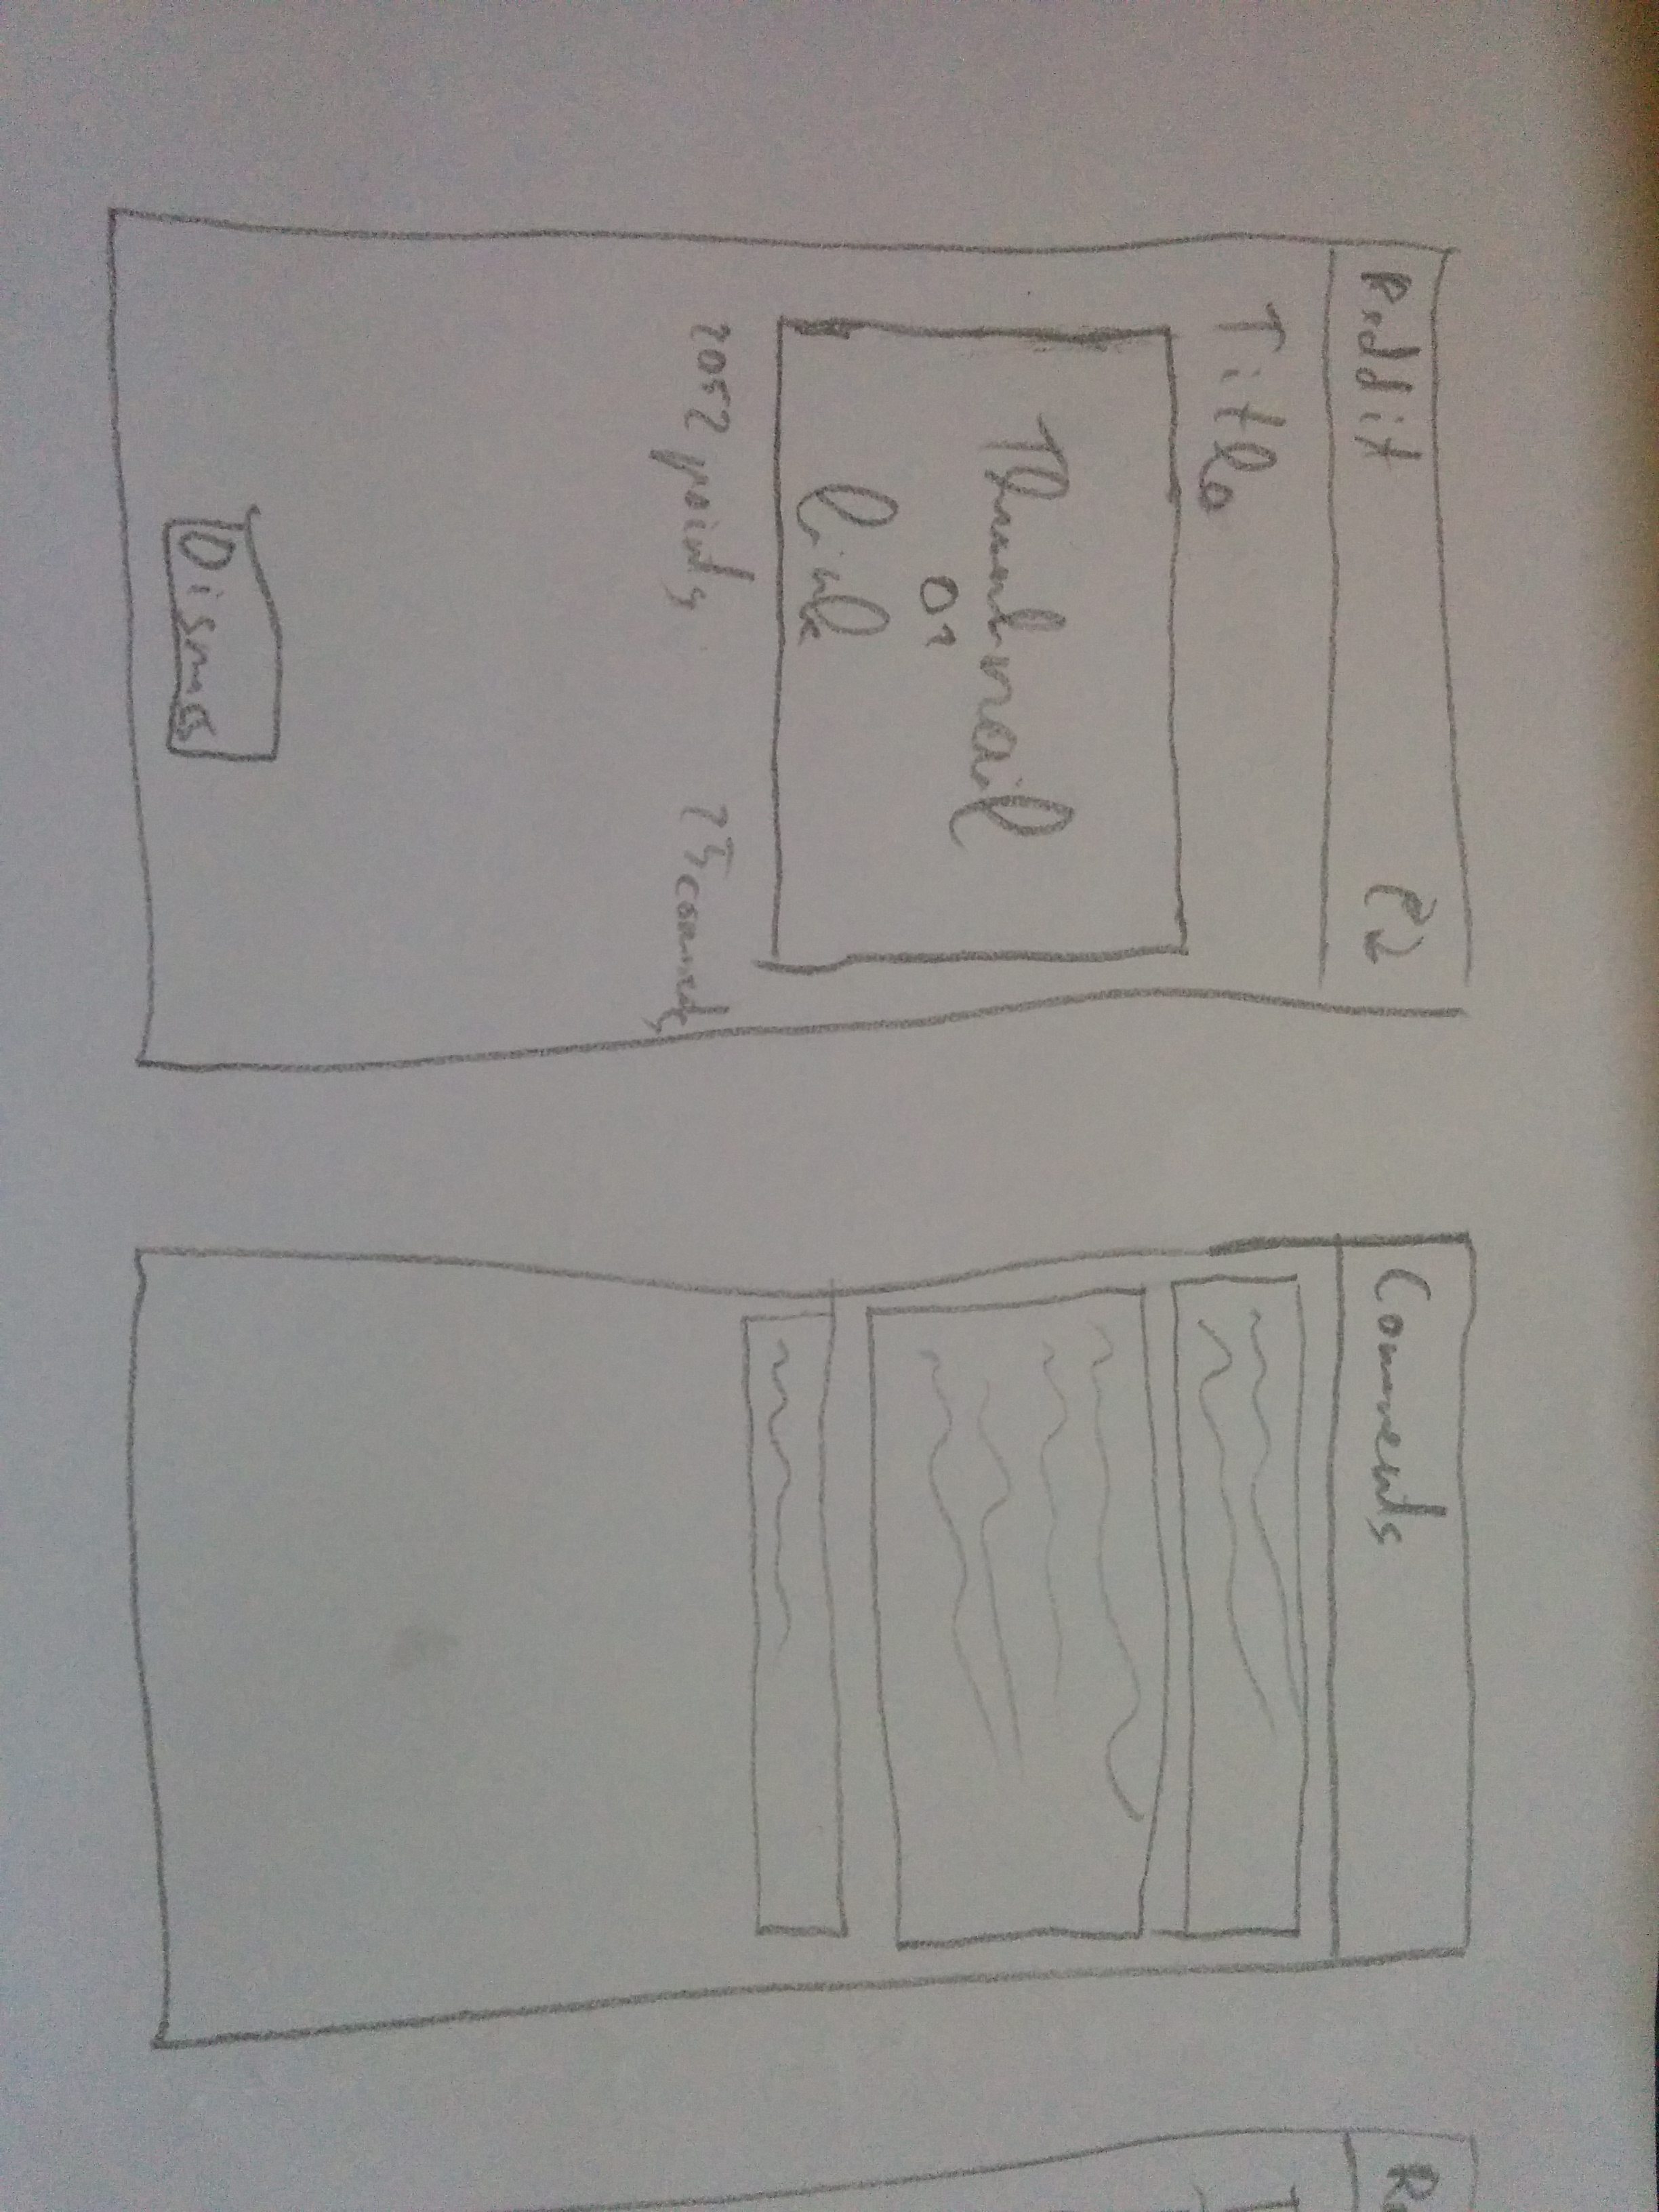 Reddit
Title
Thumbnail
or
link
2052 points
Dismiss
Comments